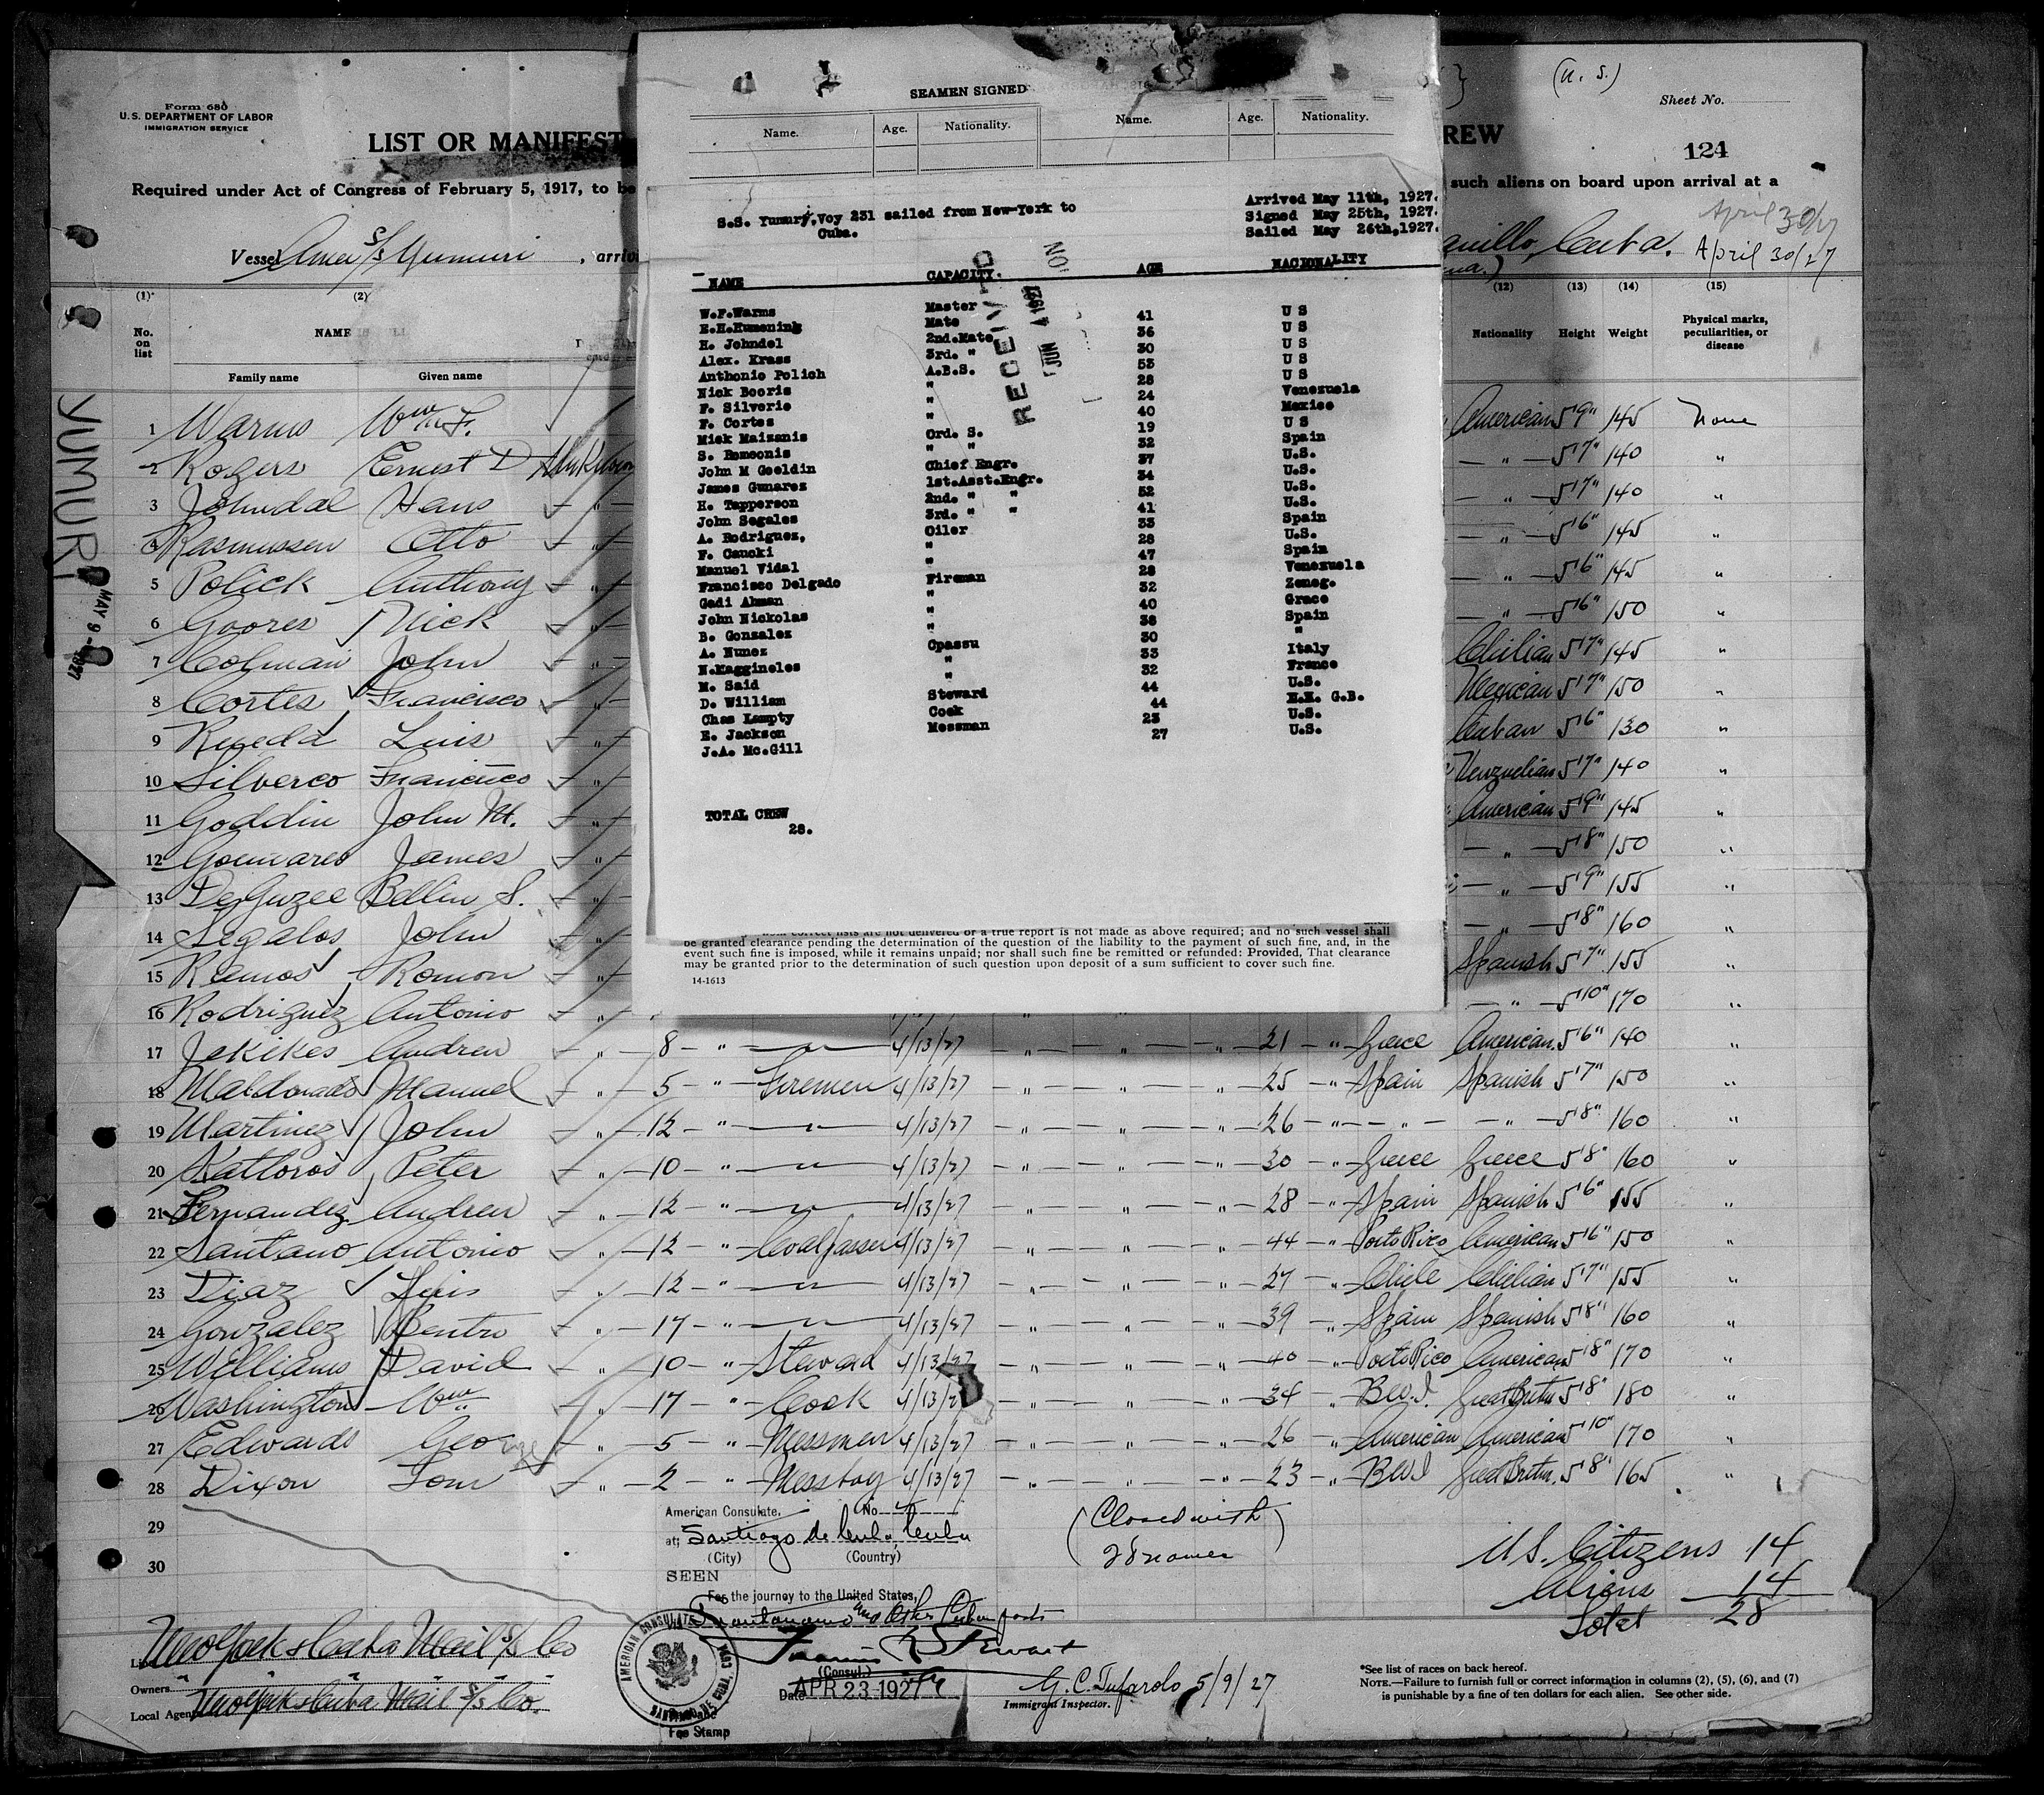 Form 680
U.S. DEPARTMENT OF LABOR
IMMIGRATION SERVICE
(U. S.)
Sheet No.
LIST OR MANIFEST
REW
124
Required under Act of Congress of February 5, 1917, to be
such aliens on board upon arrival at a
April 30/27
Vessel Amer S/S Yumuri, arri
anillo, Cuba. April 30/27
(1)* (2) (12) (13) (14) (15)
No. on list NAME IN FULL Nationality Height Weight Physical marks, peculiarities, or disease
Family name Given name
YUMURI
MAY 9 - 1927
SEAMEN SIGNED
Name. Age. Nationality. Name. Age. Nationality.
S.S. Yumury, Voy 231 sailed from New-York to
Cuba.
Arrived May 11th, 1927.
Signed May 25th, 1927.
Sailed May 26th, 1927.
RECEIVED
JUN 4 1927
NAME CAPACITY. AGE NACIONALITY
W.F.Warms Master 41 U S
E.H.Kumening Mate 36 U S
H. Johndel 2nd.Mate 30 U S
Alex. Krass 3rd. " 53 U S
Anthonio Polich A.B.S. 28 U S
Nick Booris " 24 Venezuela
F. Silverie " 40 Mexico
F. Cortes " 19 U S
Mick Maizanis Ord. S. 32 Spain
S. Romeonis " " 37 U.S.
John M Goeldin Chief Engr. 34 U.S.
James Gunarez 1st.Asst.Engr. 52 U.S.
H. Tapperson 2nd. " " 41 U.S.
John Segales 3rd. " " 33 Spain
A. Rodriguez, Oiler 28 U.S.
F. Caucki " 47 Spain
Manuel Vidal " 28 Venezuela
Francisco Delgado Fireman 32 Zeneg.
Gadi Ahman " 40 Grece
John Nickolas " 38 Spain
B. Gonzalez " 30 "
A. Nunez Cpassu 33 Italy
N.Maggineles " 32 France
M. Said " 44 U.S.
D. William Steward 44 H.H. G.B.
Chas Lampty Cook 23 U.S.
E. Jackson Messman 27 U.S.
J.A. Mc.Gill
TOTAL CREW
28.
be granted clearance pending the determination of the question of the liability to the payment of such fine, and, in the
event such fine is imposed, while it remains unpaid; nor shall such fine be remitted or refunded: Provided, That clearance
may be granted prior to the determination of such question upon deposit of a sum sufficient to cover such fine.
14-1613
1 Warms Wm F. American 5'9" 145 None
2 Rogers Ernest D — " — 5'7" 140 "
3 Johndal Hans — " — 5'7" 140 "
4 Rasmussen Otto — " — 5'6" 145 "
5 Polick Anthony — " — 5'6" 145 "
6 Goores Nick — " — 5'6" 150 "
7 Colman John Chilian 5'7" 145 "
8 Cortes Francisco Mexican 5'7" 150 "
9 Luis Cuban 5'6" 130 "
10 Silverco Francisco Venzuelian 5'7" 140 "
11 Goddin John M. American 5'9" 145 "
12 Gounares James — " — 5'8" 150 "
13 DeGuzee Bellin S. — " — 5'9" 155 "
14 Segalos John — " — 5'8" 160 "
15 Ramos Romon Spanish 5'7" 155 "
16 Rodriguez Antonio — " — 5'10" 170 "
17 Jekikes Andrew 8 " — " — 4/13/27 21 " Greece American 5'6" 140 "
18 Maldonado Manuel 5 " Firemen 4/13/27 25 " Spain Spanish 5'7" 150 "
19 Martinez John 12 " — " — 4/13/27 26 " — " — — " — 5'8" 160 "
20 Katloros Peter 10 " — " — 4/13/27 30 " Greece Greece 5'8" 160 "
21 Fernandez Andrew 12 " — " — 4/13/27 28 " Spain Spanish 5'6" 155 "
22 Santano Antonio 12 " Coalpasser 4/13/27 44 " Porto Rico American 5'6" 150 "
23 Diaz Luis 12 " — " — 4/13/27 27 " Chile Chilian 5'7" 155 "
24 Gonzalez Bentro 17 " — " — 4/13/27 39 " Spain Spanish 5'8" 160 "
25 Williams David 10 " Steward 4/13/27 40 " Porto Rico American 5'8" 170 "
26 Washington Wm 17 " Cook 4/13/27 34 " B.W.I. Great Britn 5'8" 180 "
27 Edwards George 5 " Messmen 4/13/27 26 " American American 5'10" 170 "
28 Dixon Tom 2 " Messboy 4/13/27 23 " BWI Great Britn. 5'8" 165 "
29
30
American Consulate, No.
at Santiago de Cuba Cuba
(City) (Country)
SEEN
For the journey to the United States,
Guantanamo and other Cuban ports
(Consul.)
Date APR 23 1927
AMERICAN CONSULATE
SANTIAGO DE CUBA, CUBA
Fee Stamp
(Closed with
28 names)
U.S. Citizens 14
Aliens 14
Total 28
Line New York & Cuba Mail S/S Co
Owners " " " " "
Local Agent New York & Cuba Mail S/S Co.
G. C. Tufarolo 5/9/27
Immigrant Inspector.
*See list of races on back hereof.
NOTE.—Failure to furnish full or correct information in columns (2), (5), (6), and (7)
is punishable by a fine of ten dollars for each alien. See other side.